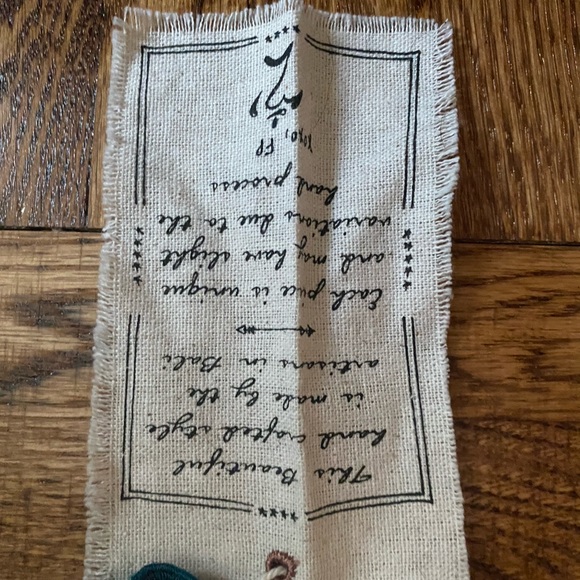 This Beautiful
hand crafted style
is made by the
artisans in Bali
Each piece is unique
and may have slight
variations due to the
hand process
XOXO, FP